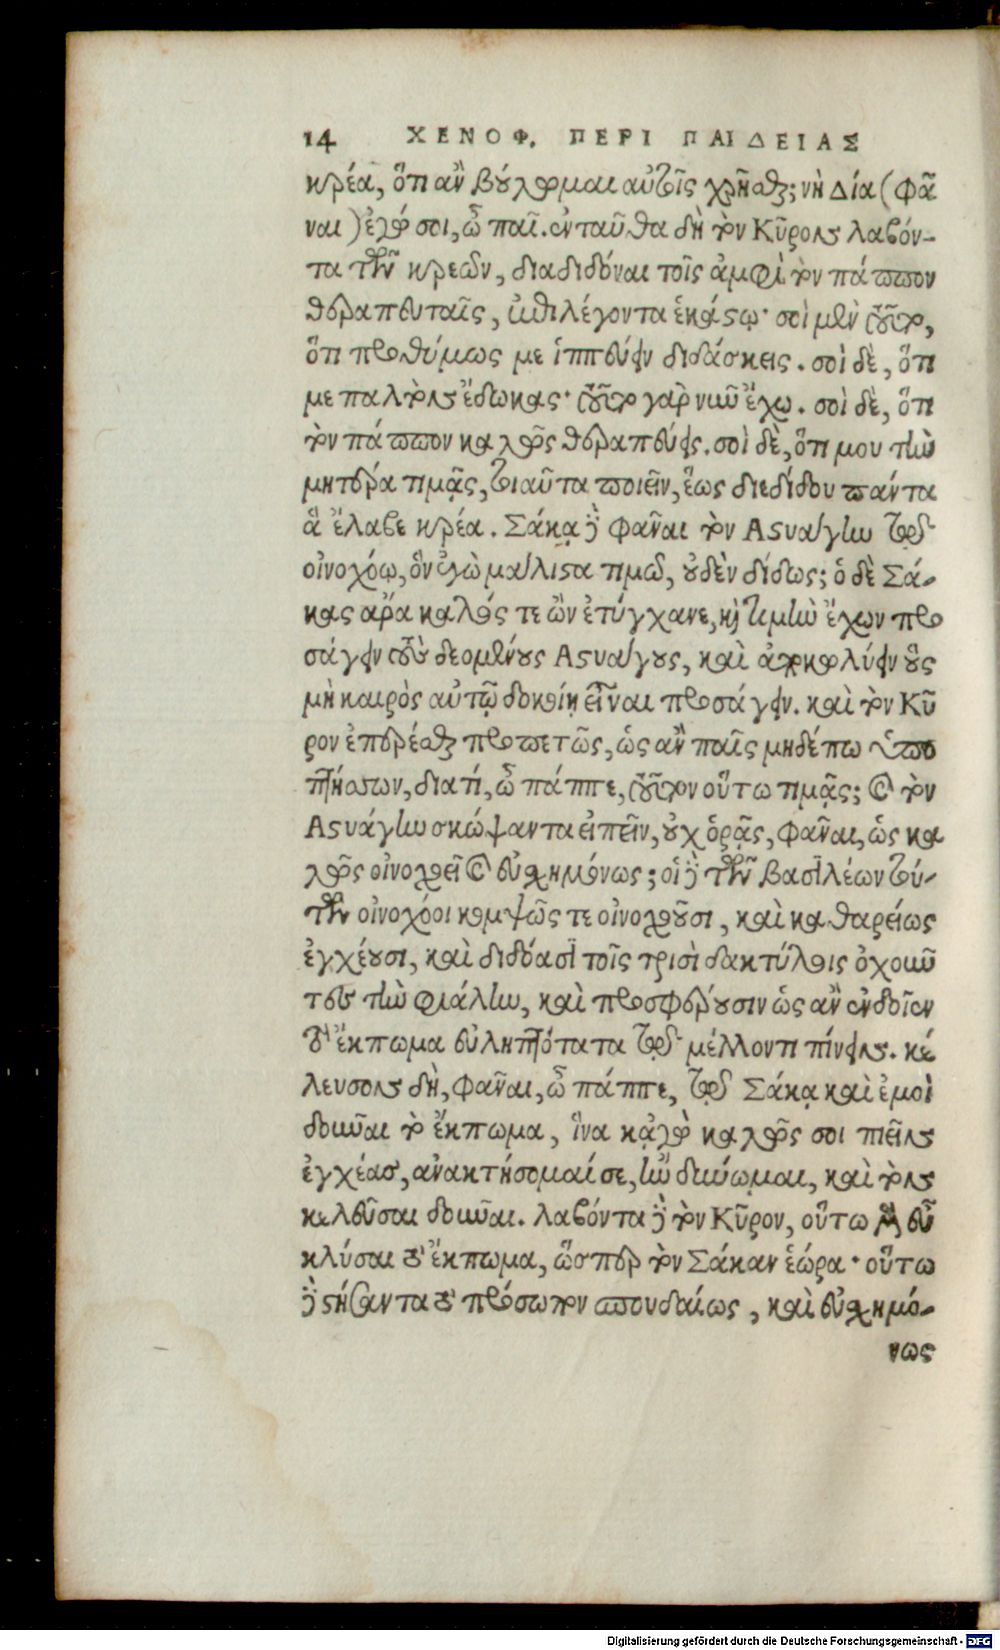 14 ΧΕΝΟΦ. ΠΕΡΙ ΠΑΙΔΕΙΑΣ
κρέα, ὅτι ἂν βούλομαι αὐτοῖς χρῆσθαι; νὴ Δία (φᾶ
ναι) ἔγωγέ σοι, ὦ παῖ. ἐνταῦθα δὴ τὸν Κῦρον λαβόν-
τα τῶν κρεῶν, διαδιδόναι τοῖς ἀμφὶ τὸν πάππον
θεραπευταῖς, ἐπιλέγοντα ἑκάστῳ· σοὶ μὲν τοῦτο,
ὅτι προθύμως με ἱππεύειν διδάσκεις. σοὶ δὲ, ὅτι
με παλτὸν ἔδωκας· τοῦτο γὰρ νῦν ἔχω. σοὶ δὲ, ὅτι
τὸν πάππον καλῶς θεραπεύεις. σοὶ δὲ, ὅτι μου τὴν
μητέρα τιμᾷς, τοιαῦτα ποιεῖν, ἕως διεδίδου πάντα
ἃ ἔλαβε κρέα. Σάκᾳ δὲ φᾶναι τὸν Αστυάγην τῷ
οἰνοχόῳ, ὃν ἐγὼ μάλιστα τιμῶ, οὐδὲν δίδως; ὁ δὲ Σά-
κας ἄρα καλός τε ὢν ἐτύγχανε, καὶ τιμὴν ἔχων προ
σάγειν τοὺς δεομένους Αστυάγους, καὶ ἀποκωλύειν οὓς
μὴ καιρὸς αὐτῷ δοκοίη εἶναι προσάγειν. καὶ τὸν Κῦ
ρον ἐπερέσθαι προπετῶς, ὡς ἂν παῖς μηδέπω ὑπο
πτήσσων, διατί, ὦ πάππε, τοῦτον οὕτω τιμᾷς; καὶ τὸν
Αστυάγην σκώψαντα εἰπεῖν, οὐχ ὁρᾷς, φᾶναι, ὡς κα
λῶς οἰνοχοεῖ καὶ εὐσχημόνως; οἱ δὲ τῶν βασιλέων τού-
των οἰνοχόοι κομψῶς τε οἰνοχοοῦσι, καὶ καθαρείως
ἐγχέουσι, καὶ διδόασι τοῖς τρισὶ δακτύλοις ὀχοῦν
τες τὴν φιάλην, καὶ προσφέρουσιν ὡς ἂν ἐνδοῖεν
τὸ ἔκπωμα εὐληπτότατα τῷ μέλλοντι πίνειν. κέ
λευσον δὴ, φᾶναι, ὦ πάππε, τῷ Σάκᾳ καὶ ἐμοὶ
δοῦναι τὸ ἔκπωμα, ἵνα κᾀγὼ καλῶς σοι πιεῖν
ἐγχέας, ἀνακτήσομαί σε, ἢν δύνωμαι, καὶ τὸν
κελεῦσαι δοῦναι. λαβόντα δὲ τὸν Κῦρον, οὕτω μὲν εὖ
κλύσαι τὸ ἔκπωμα, ὥσπερ τὸν Σάκαν ἑώρα· οὕτω
δὲ στήσαντα τὸ πρόσωπον σπουδαίως, καὶ εὐσχημό-
νως
Digitalisierung gefördert durch die Deutsche Forschungsgemeinschaft - DFG